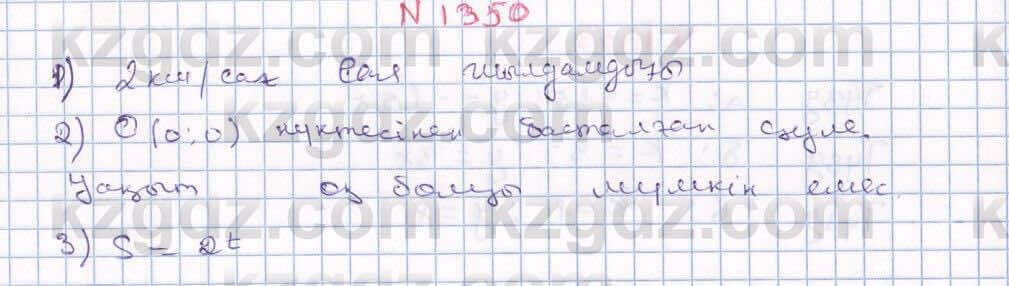 N 1350
1) 2 км/сағ Саля жылдамдығы
2) O (0; 0) нүктесінен басталған сәуле.
Уақыт аз болуы мүмкін емес.
3) S = 2t
kzgdz.com kzgdz.com
kzgdz.com kzgdz.com